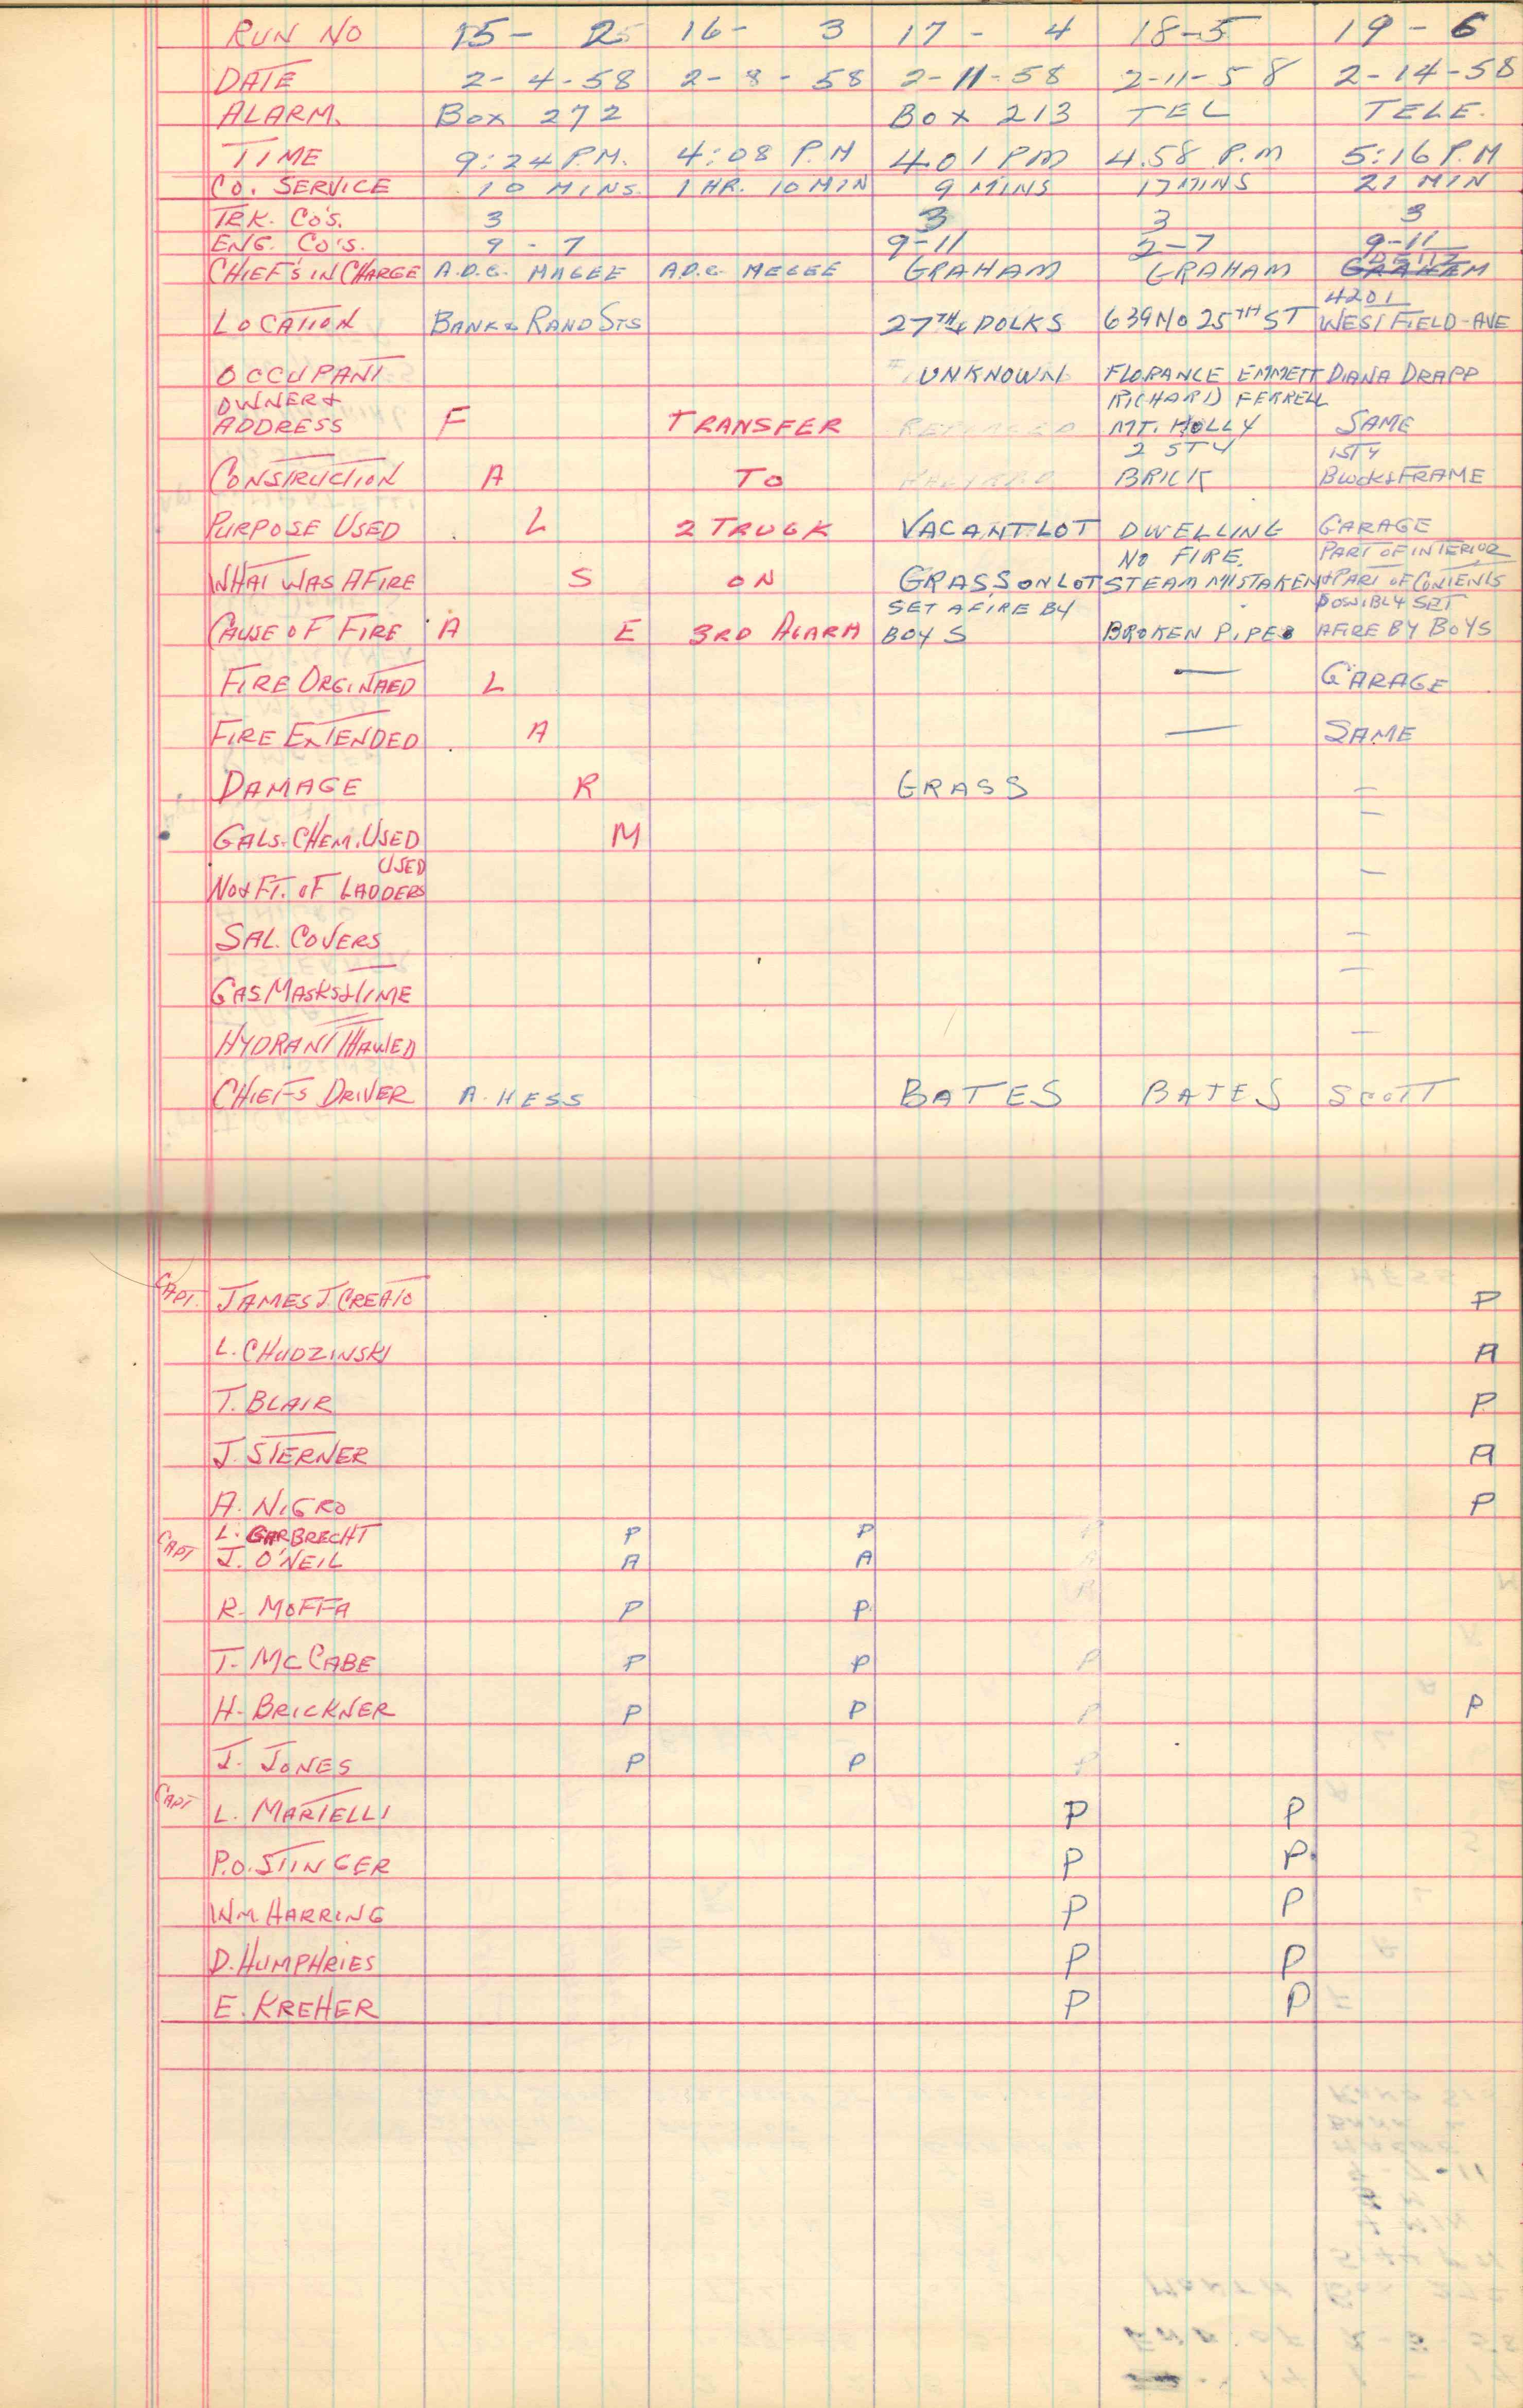 RUN NO 15- 2 16- 3 17- 4 18-5 19-6
DATE 2-4-58 2-8-58 2-11-58 2-11-58 2-14-58
ALARM. BOX 272 BOX 213 TEL TELE.
TIME 9:24 P.M. 4:08 P.M 4.01 PM 4.58 P.M 5:16 P.M
CO. SERVICE 10 MINS. 1 HR. 10 MIN 9 MINS 17 MINS 21 MIN
TRK. CO'S. 3 3 3 3
ENG. CO'S. 9-7 9-11 2-7 9-11
DEITZ
CHIEF'S IN CHARGE A.D.C. MAGEE A.D.C. MEGEE GRAHAM GRAHAM GRAHAM
4201
LOCATION BANK & RAND STS 27TH & POLKS 639 NO 25TH ST WESTFIELD-AVE
OCCUPANT UNKNOWN FLORANCE EMMETT DIANA DRAPP
OWNER & RICHARD FERRELL
ADDRESS F TRANSFER MT. HOLLY SAME
2 STY 1STY
CONSTRUCTION A TO BRICK BLOCK & FRAME
PURPOSE USED L 2 TRUCK VACANT LOT DWELLING GARAGE
NO FIRE. PART OF INTERIOR
WHAT WAS AFIRE S ON GRASS ON LOT STEAM MISTAKEN & PART OF CONTENTS
SET AFIRE BY POSSIBLY SET
CAUSE OF FIRE A E 3RD ALARM BOYS BROKEN PIPE AFIRE BY BOYS
FIRE ORGINTAED L — GARAGE
FIRE EXTENDED A — SAME
DAMAGE R GRASS —
GALS. CHEM. USED M —
USED
NO & FT. OF LADDERS —
SAL. COVERS —
GAS MASKS & TIME —
HYDRANT THAWED —
CHIEFS DRIVER A. HESS BATES BATES SCOTT
CAPT. JAMES J. CREATO P
L. CHUDZINSKI A
T. BLAIR P
J. STERNER A
A. NIGRO P
L. GARBRECHT P P P
CAPT J. O'NEIL A A A
R. MOFFA P P P
T. MCCABE P P P
H. BRICKNER P P P P
J. JONES P P P
CAPT L. MARTELLI P P
P.O. STINGER P P
WM. HARRING P P
D. HUMPHRIES P P
E. KREHER P P